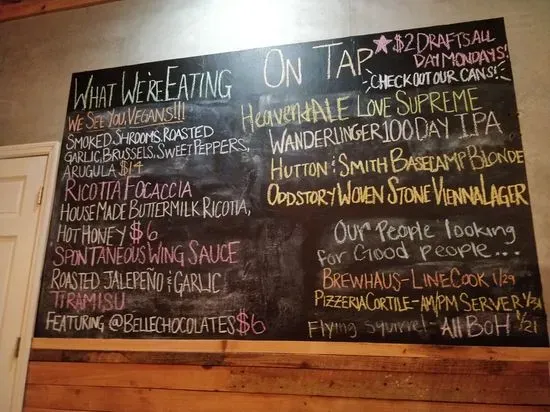 WHAT WE'RE EATING
WE SEE YOU, VEGANS!!!
SMOKED SHROOMS, ROASTED
GARLIC, BRUSSELS, SWEET PEPPERS,
ARUGULA $14
RICOTTA FOCACCIA
HOUSE MADE BUTTERMILK RICOTTA,
HOT HONEY $6
SPONTANEOUS WING SAUCE
ROASTED JALEPEÑO & GARLIC
TIRAMISU
FEATURING @BELLECHOCOLATES $6
ON TAP
★$2 DRAFTS ALL
DAY MONDAYS!
CHECK OUT OUR CANS!
HEAVEN & ALE LOVE SUPREME
WANDERLINGER 100 DAY I.P.A
HUTTON & SMITH BASECAMP BLONDE
ODDSTORY WOVEN STONE VIENNA LAGER
Our People looking
for Good people...
BREWHAUS - LINE COOK 1/29
PIZZERIA CORTILE - AM/PM SERVER 1/31
Flying Squirrel - All BOH 1/21